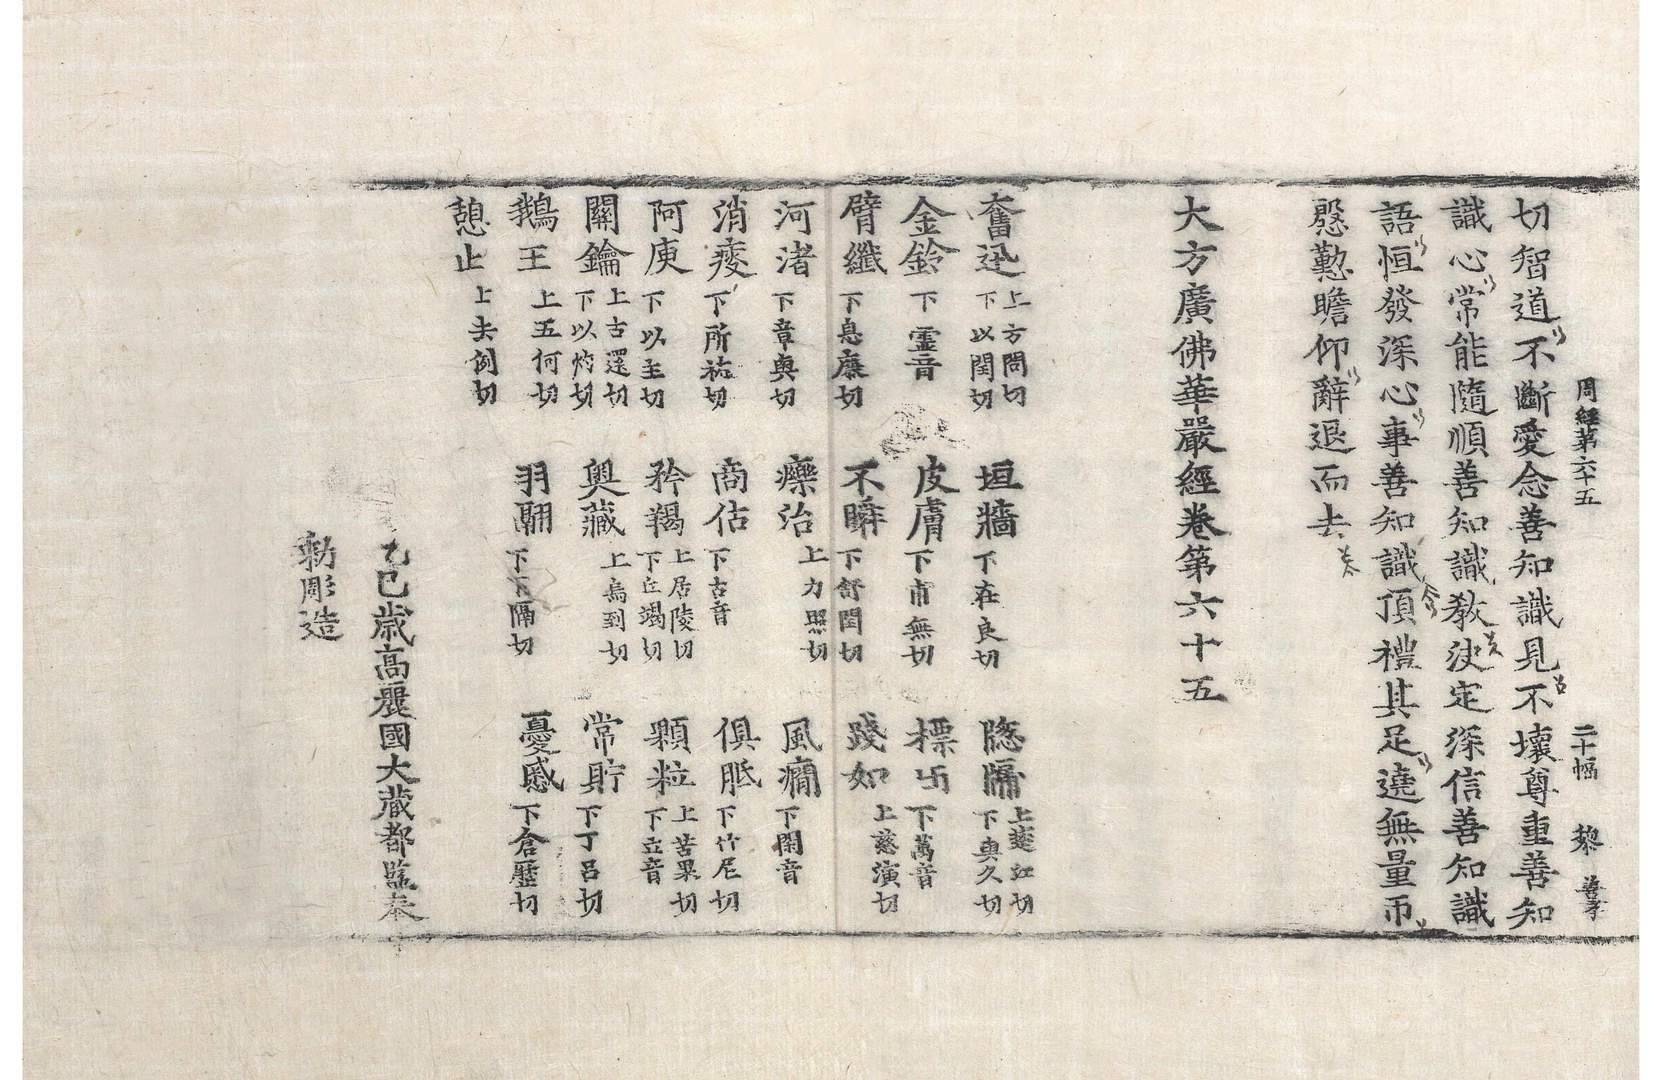 周經第六十五 二十幅 黎 善才
切智道不斷愛念善知識見不壞尊重善知
識心常能隨順善知識教決定深信善知識
語恒發深心事善知識頂禮其足遶無量帀
慇懃瞻仰辭退而去
大方廣佛華嚴經卷第六十五
奮迅 上方問切下以閏切 垣牆 下在良切 隐牖 下與久切
金鈴 下霊音 皮膚 下甫無切 標卐 下萬音
臂纖 下息廉切 不瞬 下舒閏切 踐如 上慈演切
河渚 下章與切 療治 上力照切 風癇 下閑音
消瘦 下所祐切 商估 下古音 俱胝 下竹尼切
阿庾 下以主切 矜羯 上居陵切下丘竭切 顆粒 上苦果切下立音
關鑰 上古還切下以灼切 奧藏 上烏到切 常貯 下丁呂切
鵝王 上五何切 羽翮 下下隔切 憂慼 下倉歷切
憩止 上去例切
乙巳歳高麗國大藏都監奉
勅彫造